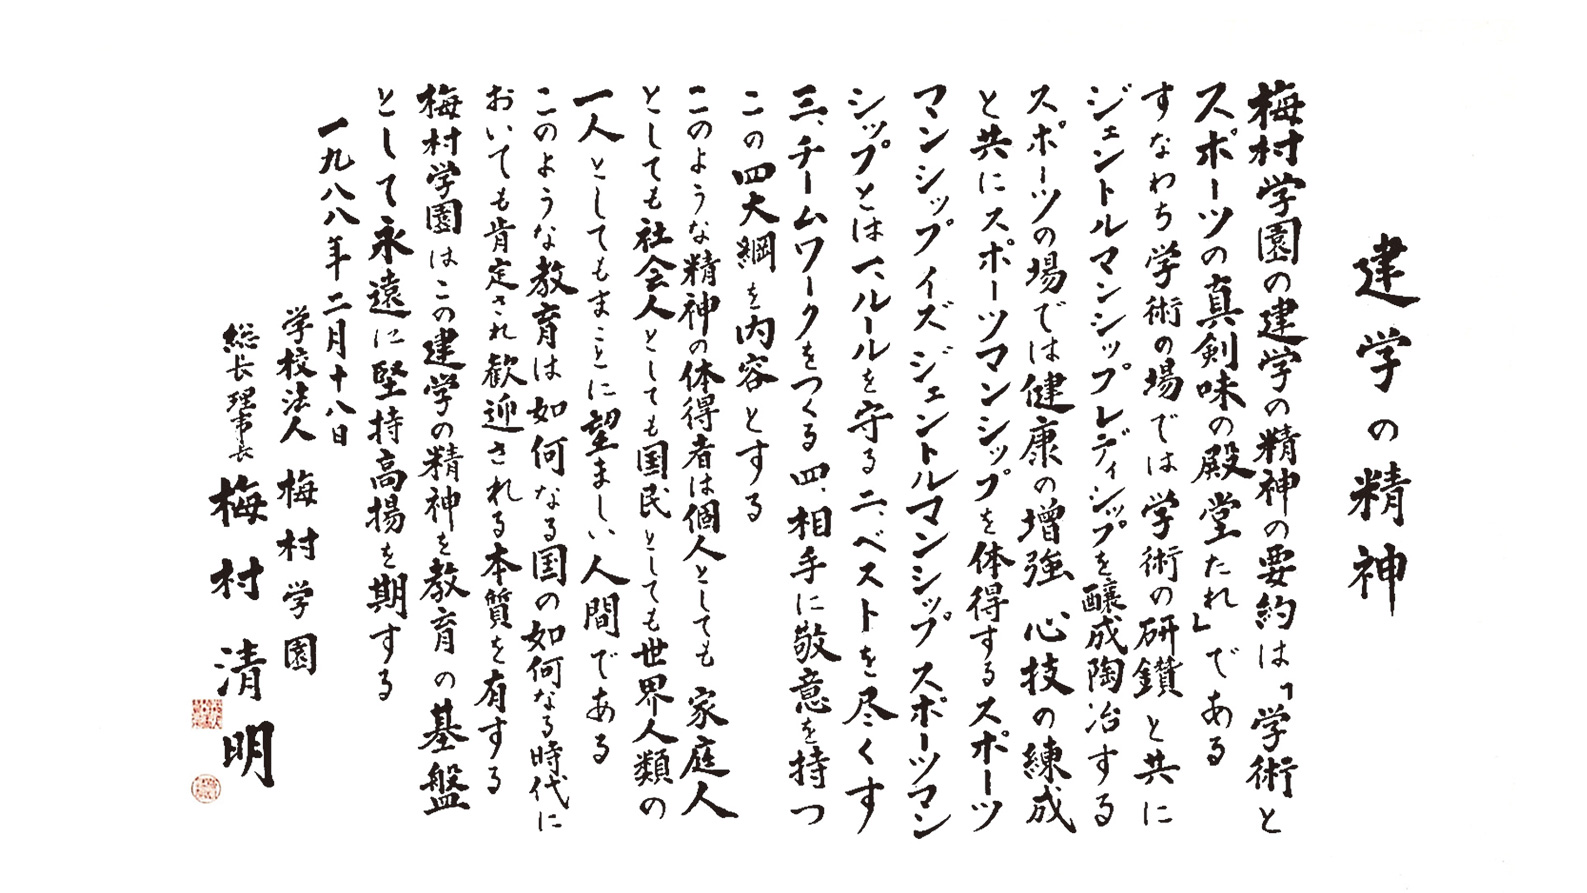 建学の精神
梅村学園の建学の精神の要約は「学術と
スポーツの真剣味の殿堂たれ」である
すなわち学術の場では学術の研鑽と共に
ジェントルマンシップレディシップを醸成陶冶する
スポーツの場では健康の増強心技の練成
と共にスポーツマンシップを体得するスポーツ
マンシップイズジェントルマンシップスポーツマン
シップとは一、ルールを守る二、ベストを尽くす
三、チームワークをつくる四、相手に敬意を持つ
この四大綱を内容とする
このような精神の体得者は個人としても家庭人
としても社会人としても国民としても世界人類の
一人としてもまことに望ましい人間である
このような教育は如何なる国の如何なる時代に
おいても肯定され歓迎される本質を有する
梅村学園はこの建学の精神を教育の基盤
として永遠に堅持高揚を期する
一九八八年二月十八日
学校法人 梅村学園
総長理事長 梅村清明